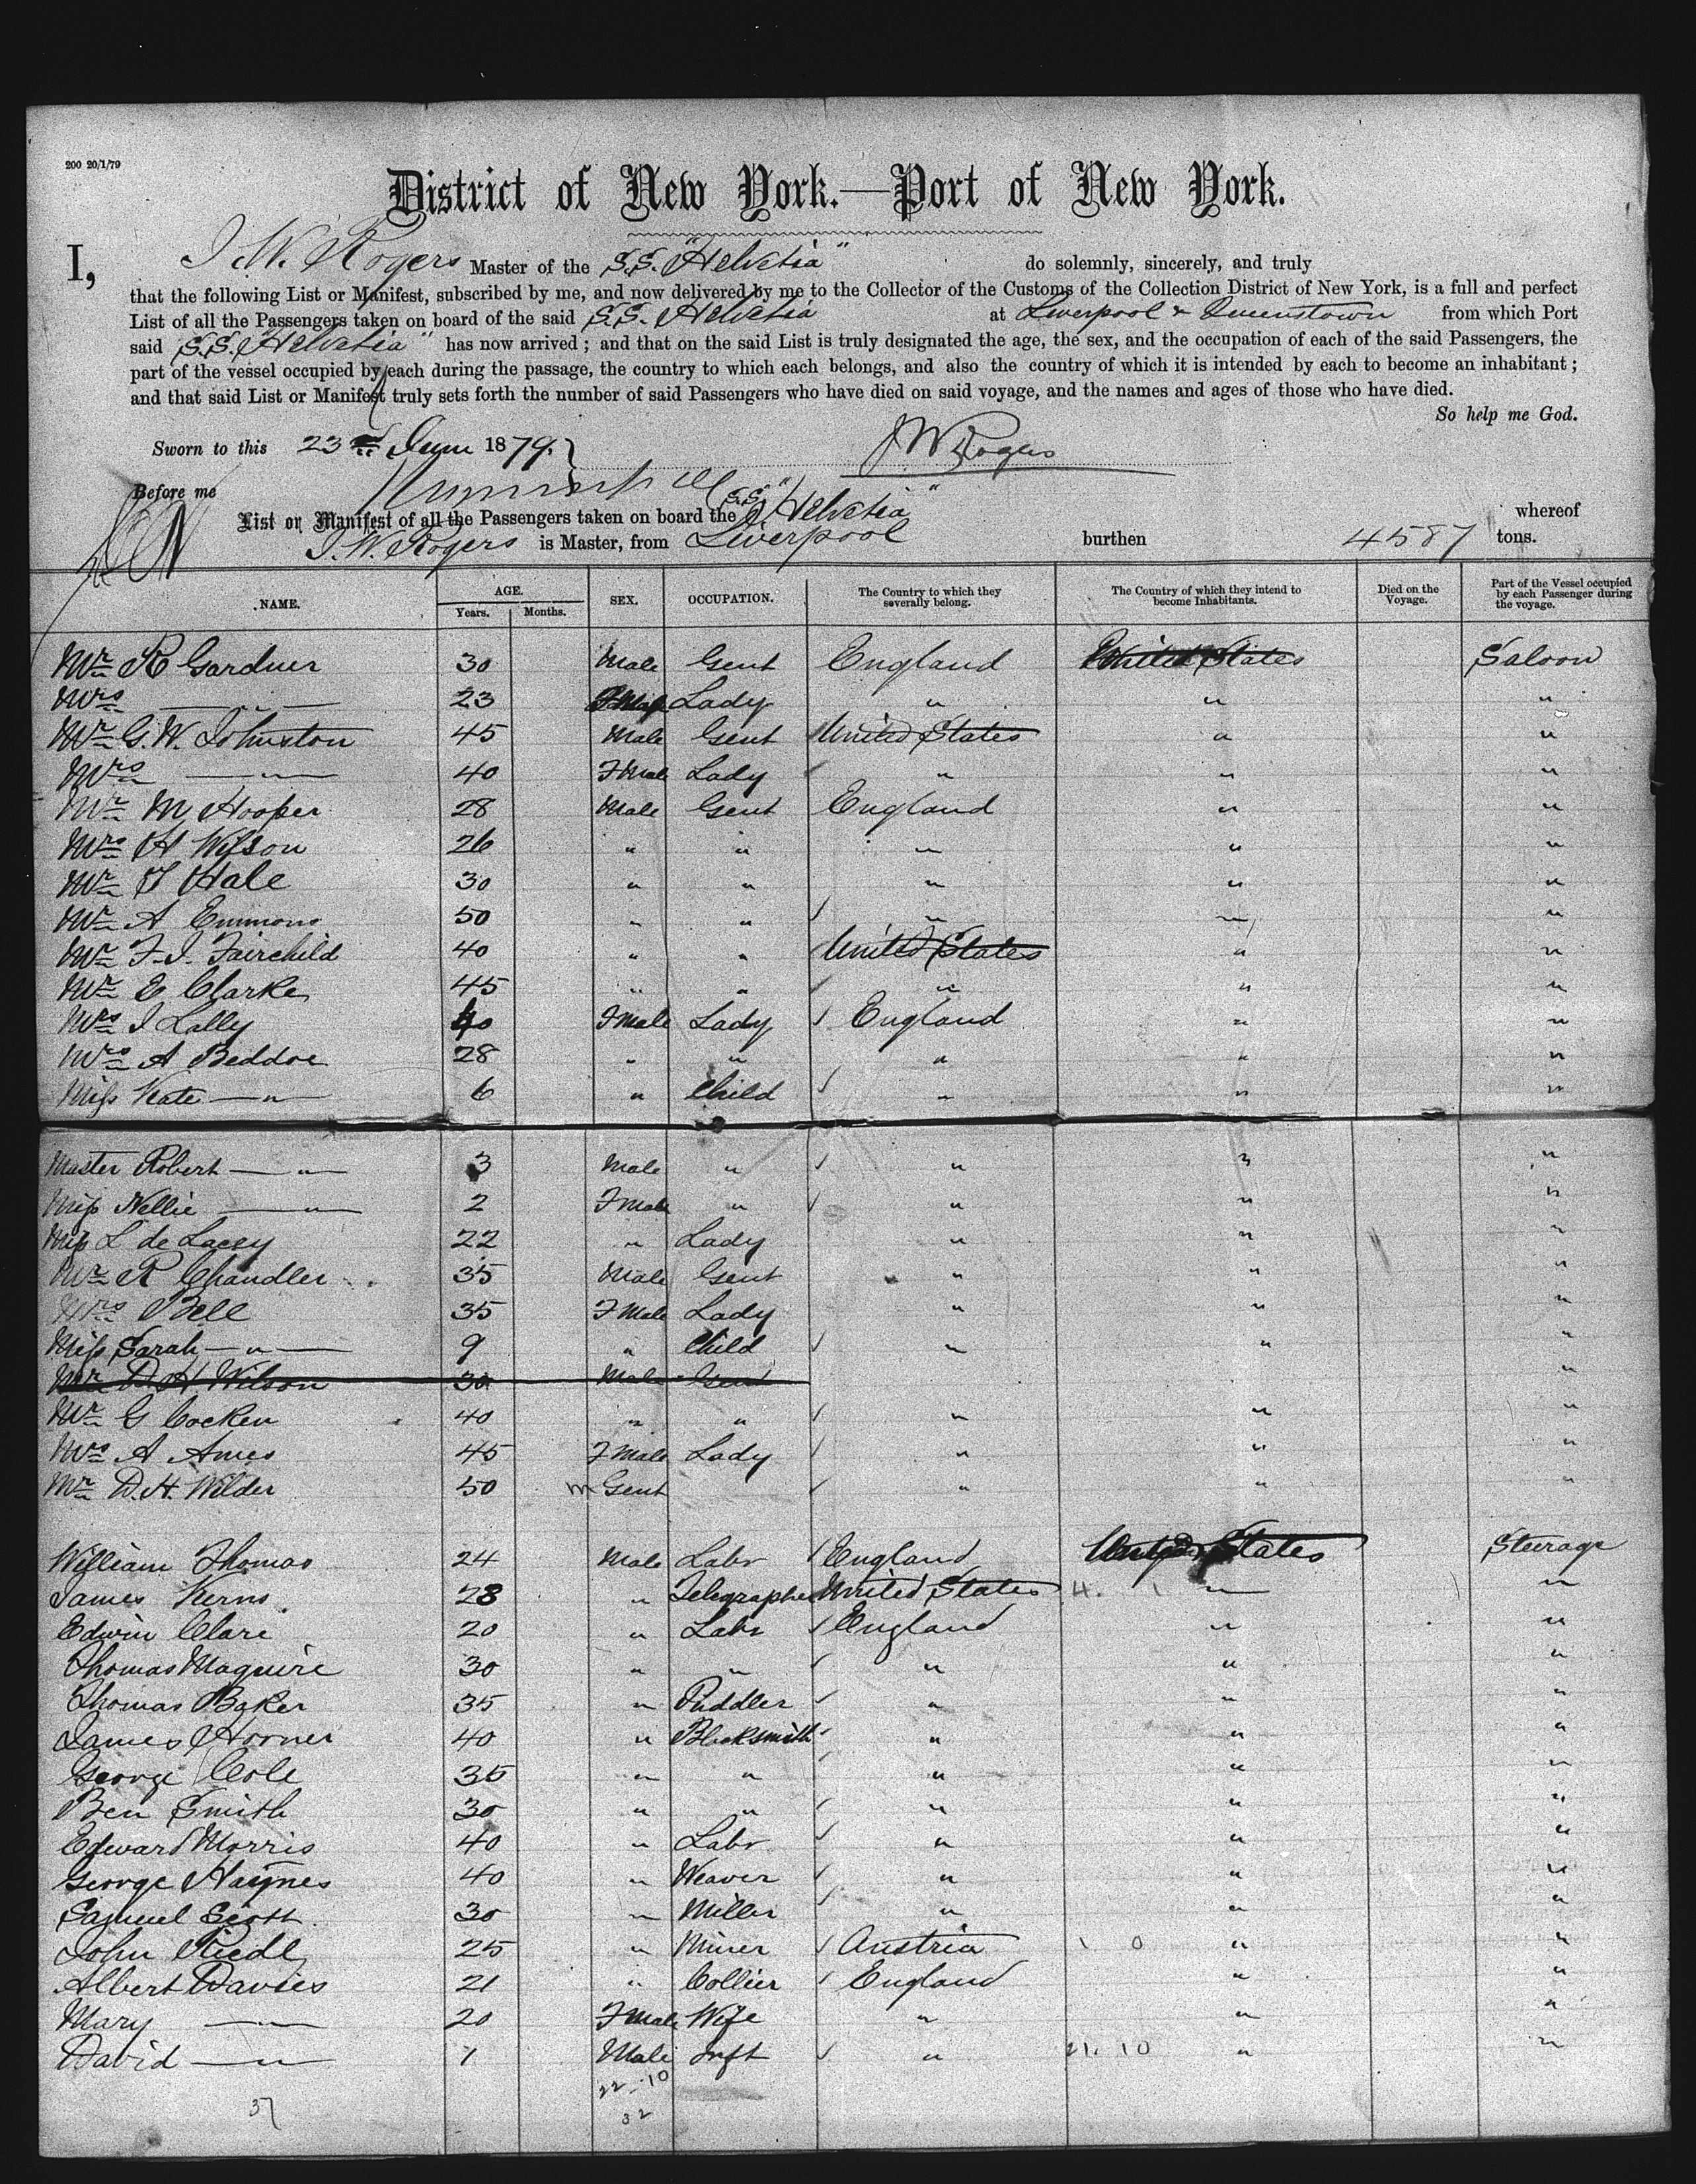 200 20/1/79
District of New York.—Port of New York.
I, J. W. Rogers Master of the S.S. "Helvetia" do solemnly, sincerely, and truly
that the following List or Manifest, subscribed by me, and now delivered by me to the Collector of the Customs of the Collection District of New York, is a full and perfect
List of all the Passengers taken on board of the said S.S. Helvetia at Liverpool & Queenstown from which Port
said S.S. "Helvetia" has now arrived; and that on the said List is truly designated the age, the sex, and the occupation of each of the said Passengers, the
part of the vessel occupied by each during the passage, the country to which each belongs, and also the country of which it is intended by each to become an inhabitant;
and that said List or Manifest truly sets forth the number of said Passengers who have died on said voyage, and the names and ages of those who have died.
So help me God.
Sworn to this 23rd June 1879. J W Rogers
Before me
List or Manifest of all the Passengers taken on board the S.S. "Helvetia" whereof
J. W. Rogers is Master, from Liverpool burthen 4587 tons.
NAME. AGE. Years. Months. SEX. OCCUPATION. The Country to which they severally belong. The Country of which they intend to become Inhabitants. Died on the Voyage. Part of the Vessel occupied by each Passenger during the voyage.
Mr R Gardner 30 Male Gent England United States Saloon
Mrs — " — 23 F Male Lady " " "
Mr G. W. Johnston 45 Male Gent United States " "
Mrs — " — 40 F Male Lady " " "
Mr M Hooper 28 Male Gent England " "
Mrs H Wilson 26 " " " " "
Mr T Hale 30 " " " " "
Mr A Emmons 50 " " " " "
Mr F. J. Fairchild 40 " " United States " "
Mr E Clarke 45 " " " " "
Mrs J Lally 40 F Male Lady England " "
Mrs A Beddoe 28 " " " " "
Miss Kate — " — 6 " Child " " "
Master Robert — " — 3 Male " " " "
Miss Nellie — " — 2 F Male " " " "
Miss L de Lacey 22 " Lady " " "
Mr R Chandler 35 Male Gent " " "
Mrs Bell 35 F Male Lady " " "
Miss Sarah — " — 9 " Child " " "
Mr D. H. Wilson 30 Male Gent "
Mr G Cocken 40 " " " " "
Mrs A Ames 45 F Male Lady " " "
Mr D. H. Wilder 50 m Gent " " "
William Thomas 24 Male Labr England United States Steerage
James Kerns 28 " Telegrapher United States 4. " "
Edwin Clare 20 " Labr England " "
Thomas Maguire 30 " " " " "
Thomas Baker 35 " Puddler " " "
James Hooner 40 " Blacksmith " " "
George Cole 35 " " " " "
Ben Smith 30 " " " " "
Edward Morris 40 " Labr " " "
George Haynes 40 " Weaver " " "
Samuel Scott 30 " Miller " " "
John Riedl 25 " Miner Austria 1 0 " "
Albert Davies 21 " Collier England " "
Mary — " — 20 F Male Wife " " "
David — " — 1 Male Inft " 21. 10 " "
22 10
37 32